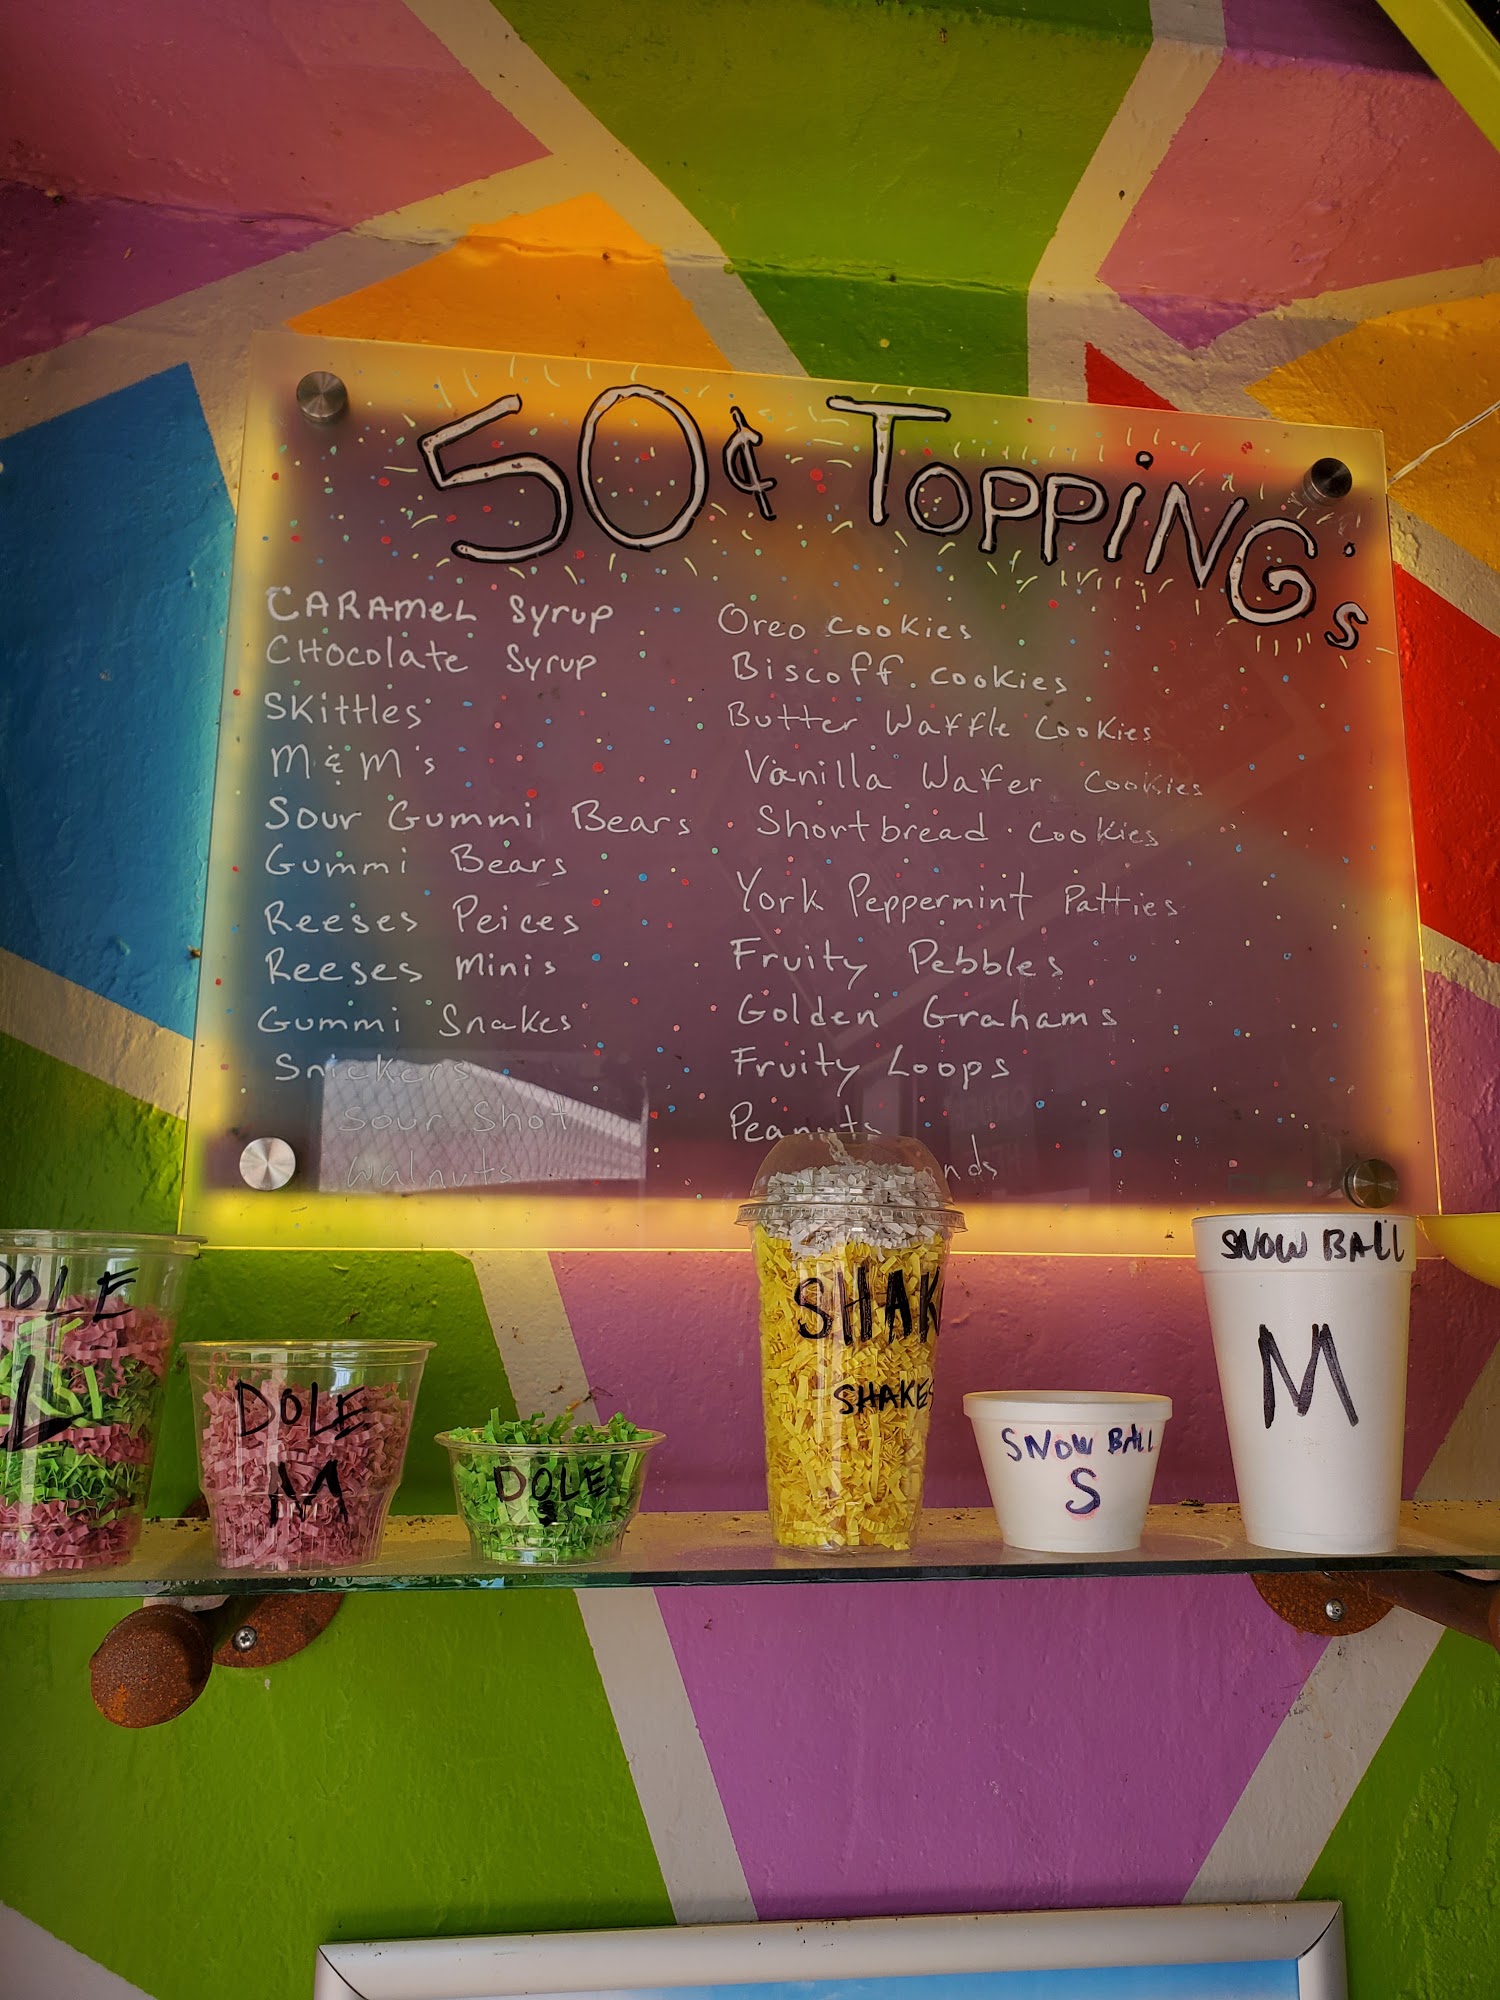 50¢ TOPPiNG's
CARAmeL Syrup
CHocolate Syrup
SKittles
M&M's
Sour Gummi Bears
Gummi Bears
Reeses Peices
Reeses minis
Gummi Snakes
Snickers
Sour Shot
Walnuts
Oreo cookies
Biscoff cookies
Butter Waffle Cookies
Vanilla Wafer cookies
Shortbread cookies
York Peppermint Patties
Fruity Pebbles
Golden Grahams
Fruity Loops
Peanuts
DOLE
L
DOLE
M
DOLE
SHAK
SHAKES
SNOW BALL
S
SNOW BALL
M